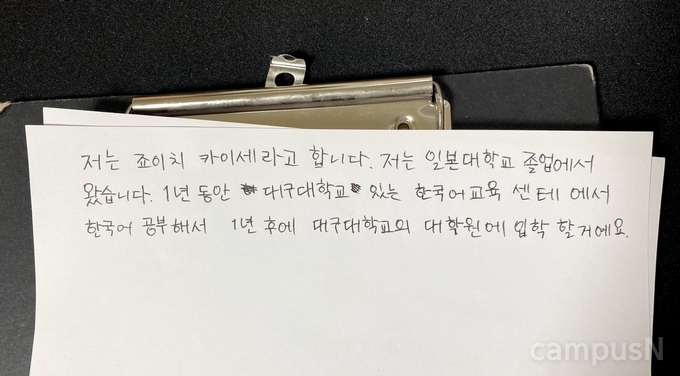 저는 죠이치 카이세라고 합니다. 저는 일본대학교 졸업에서
왔습니다. 1년 동안 대구대학교 있는 한국어교육 센테 에서
한국어 공부해서 1년 후에 대구대학교의 대학원에 입학 할거에요.
campusN